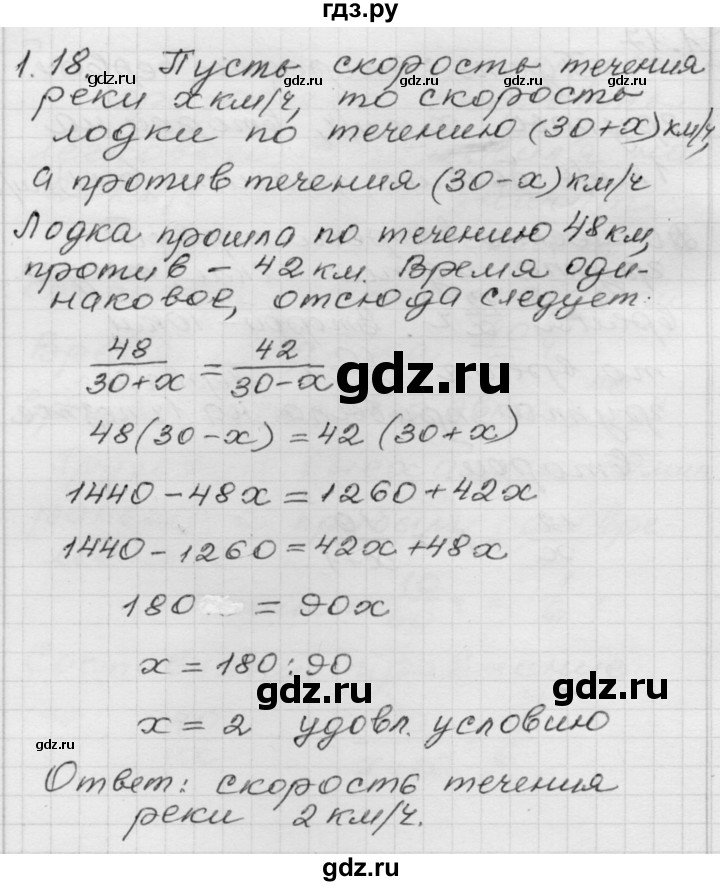 гдз.ру
1.18. Пусть скорость течения
gdz.ru
реки x км/ч, то скорость
gdz.ru
лодки по течению (30+x) км/ч,
а против течения (30-x) км/ч
Лодка прошла по течению 48 км,
против - 42 км. Время оди-
наковое, отсюда следует:
48/(30+x) = 42/(30-x)
gdz.ru
48(30-x) = 42(30+x)
1440-48x = 1260+42x
1440-1260 = 42x+48x
180 = 90x
x = 180:90
gdz.ru
gdz.ru
x = 2 удовл. условию
gdz.ru
Ответ: скорость течения
реки 2 км/ч.
gdz.ru
gdz.ru